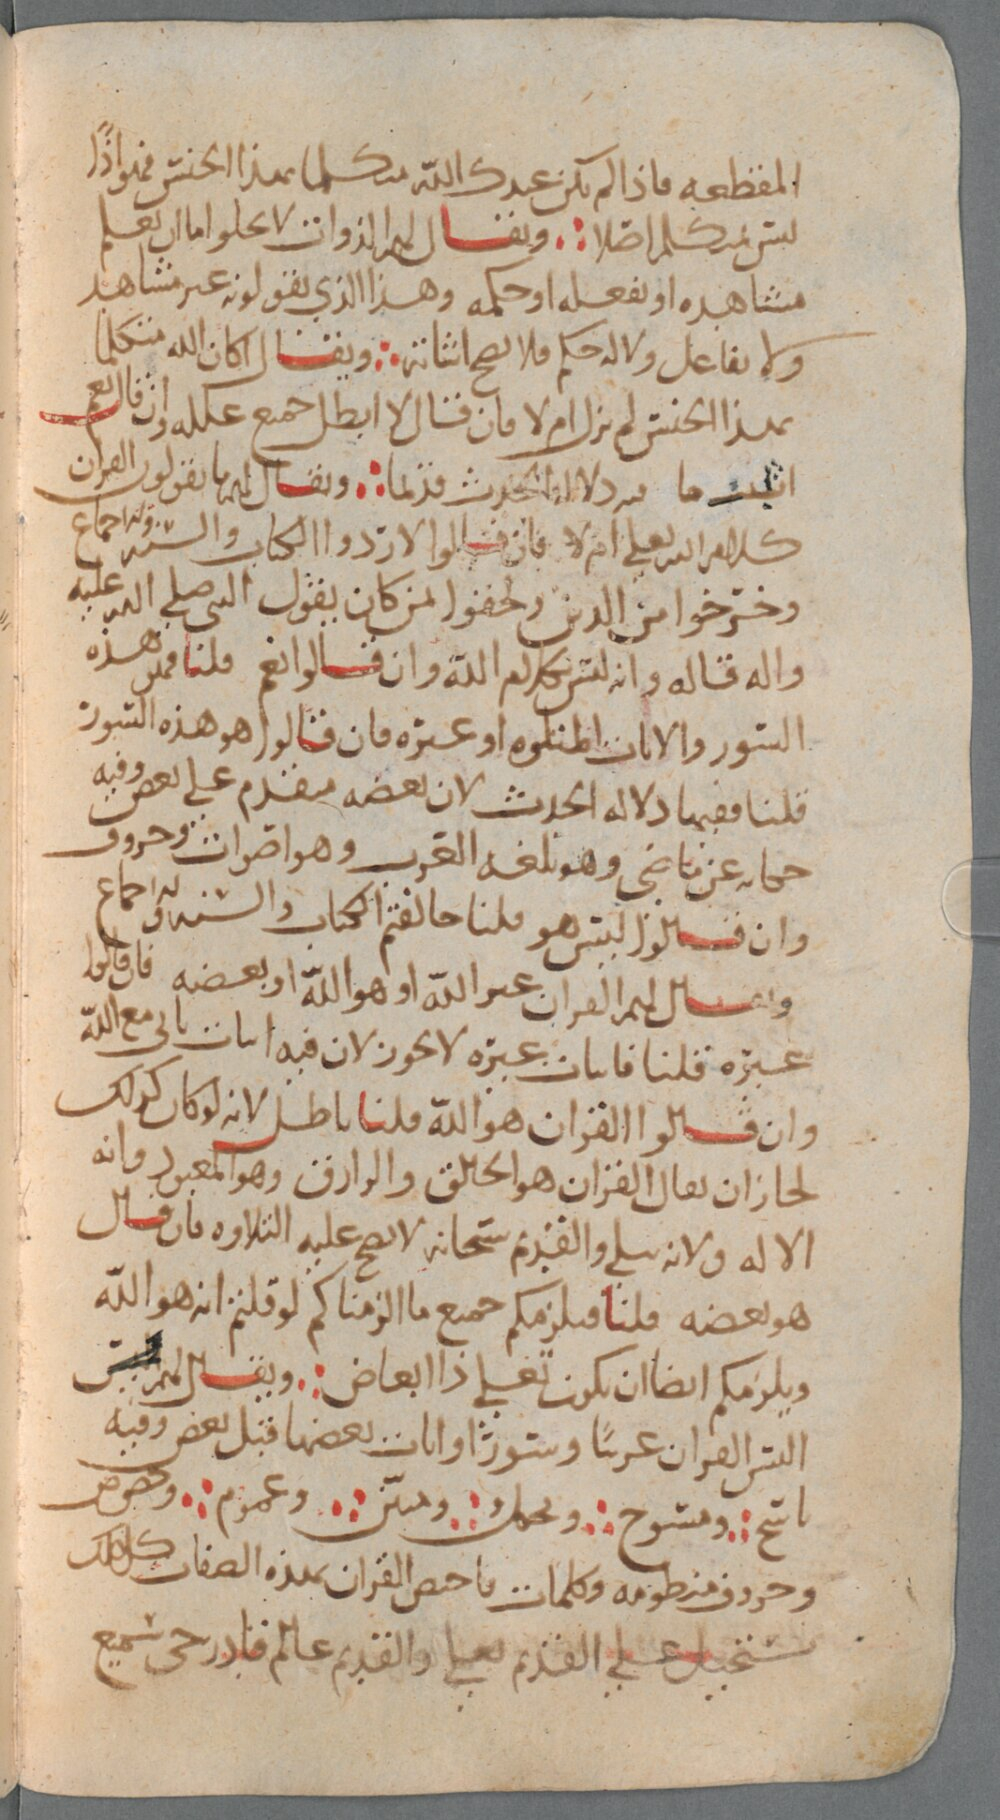 المقطعه فاذا لم يكن عندك الله متكلما بهذا الجنس فهو اذًا
ليس بمتكلم اصلا ويقال لهم الذوات لا يخلوا اما ان يعلم
مشاهده او بفعله او حكمه وهذا الذي يقولونه غير مشاهد
ولا بفاعل ولا له حكم فلا يصح اثباته ويقال اكان الله متكلما
بهذا الجنس لم يزل ام لا فان قال لا ابطل جميع علله وان قال نعم
اثبت ما فيه دلاله الحدث قديما ويقال لهم ما يقولون القران
كلام الله تعلى ام لا فان قالوا لا ردوا الكتاب والسنه والاجماع
وخرجوا من الدين ولحقوا بمن كان يقول النبي صلى الله عليه
واله قاله وانه ليس بكلام الله وان قالوا نعم قلنا فهل هذه
السور والايات المتلوه او غيره فان قالوا هو هذه السور
قلنا ففيها دلاله الحدث لان بعضه متقدم على بعض وفيه
حكايه عن ماضي وهو بلغه العرب وهو اصوات وحروف
وان قالوا ليس هو قلنا خالفتم الكتاب والسنه والاجماع
ويقال لهم القران غير الله او هو الله او بعضه فان قالوا
غيره قلنا فاثبات غيره لا يجوز لان فيه اثبات ثاني مع الله
وان قالوا القران هو الله قلنا باطل لانه لو كان كذلك
لجاز ان يقال القران هو الخالق والرازق وهو المعبود وانه
الاله ولانه يتلى والقديم سبحانه لا يصح عليه التلاوه فان قال
هو بعضه قلنا فيلزمكم جميع ما الزمناكم لو قلتم انه هو الله
ويلزمكم ايضا ان يكون تعلى ذا ابعاض ويقال لهم
اليس القران عربيًا وسورًا وايات بعضها قبل بعض وفيه
ناسخ ومنسوخ ومجمل ومبيّن وعموم وخصوص
وحروف منظومه وكلمات فاختص القران بهذه الصفات كل ذلك
يستحيل على القديم تعلى والقديم عالم قادر حي سميع